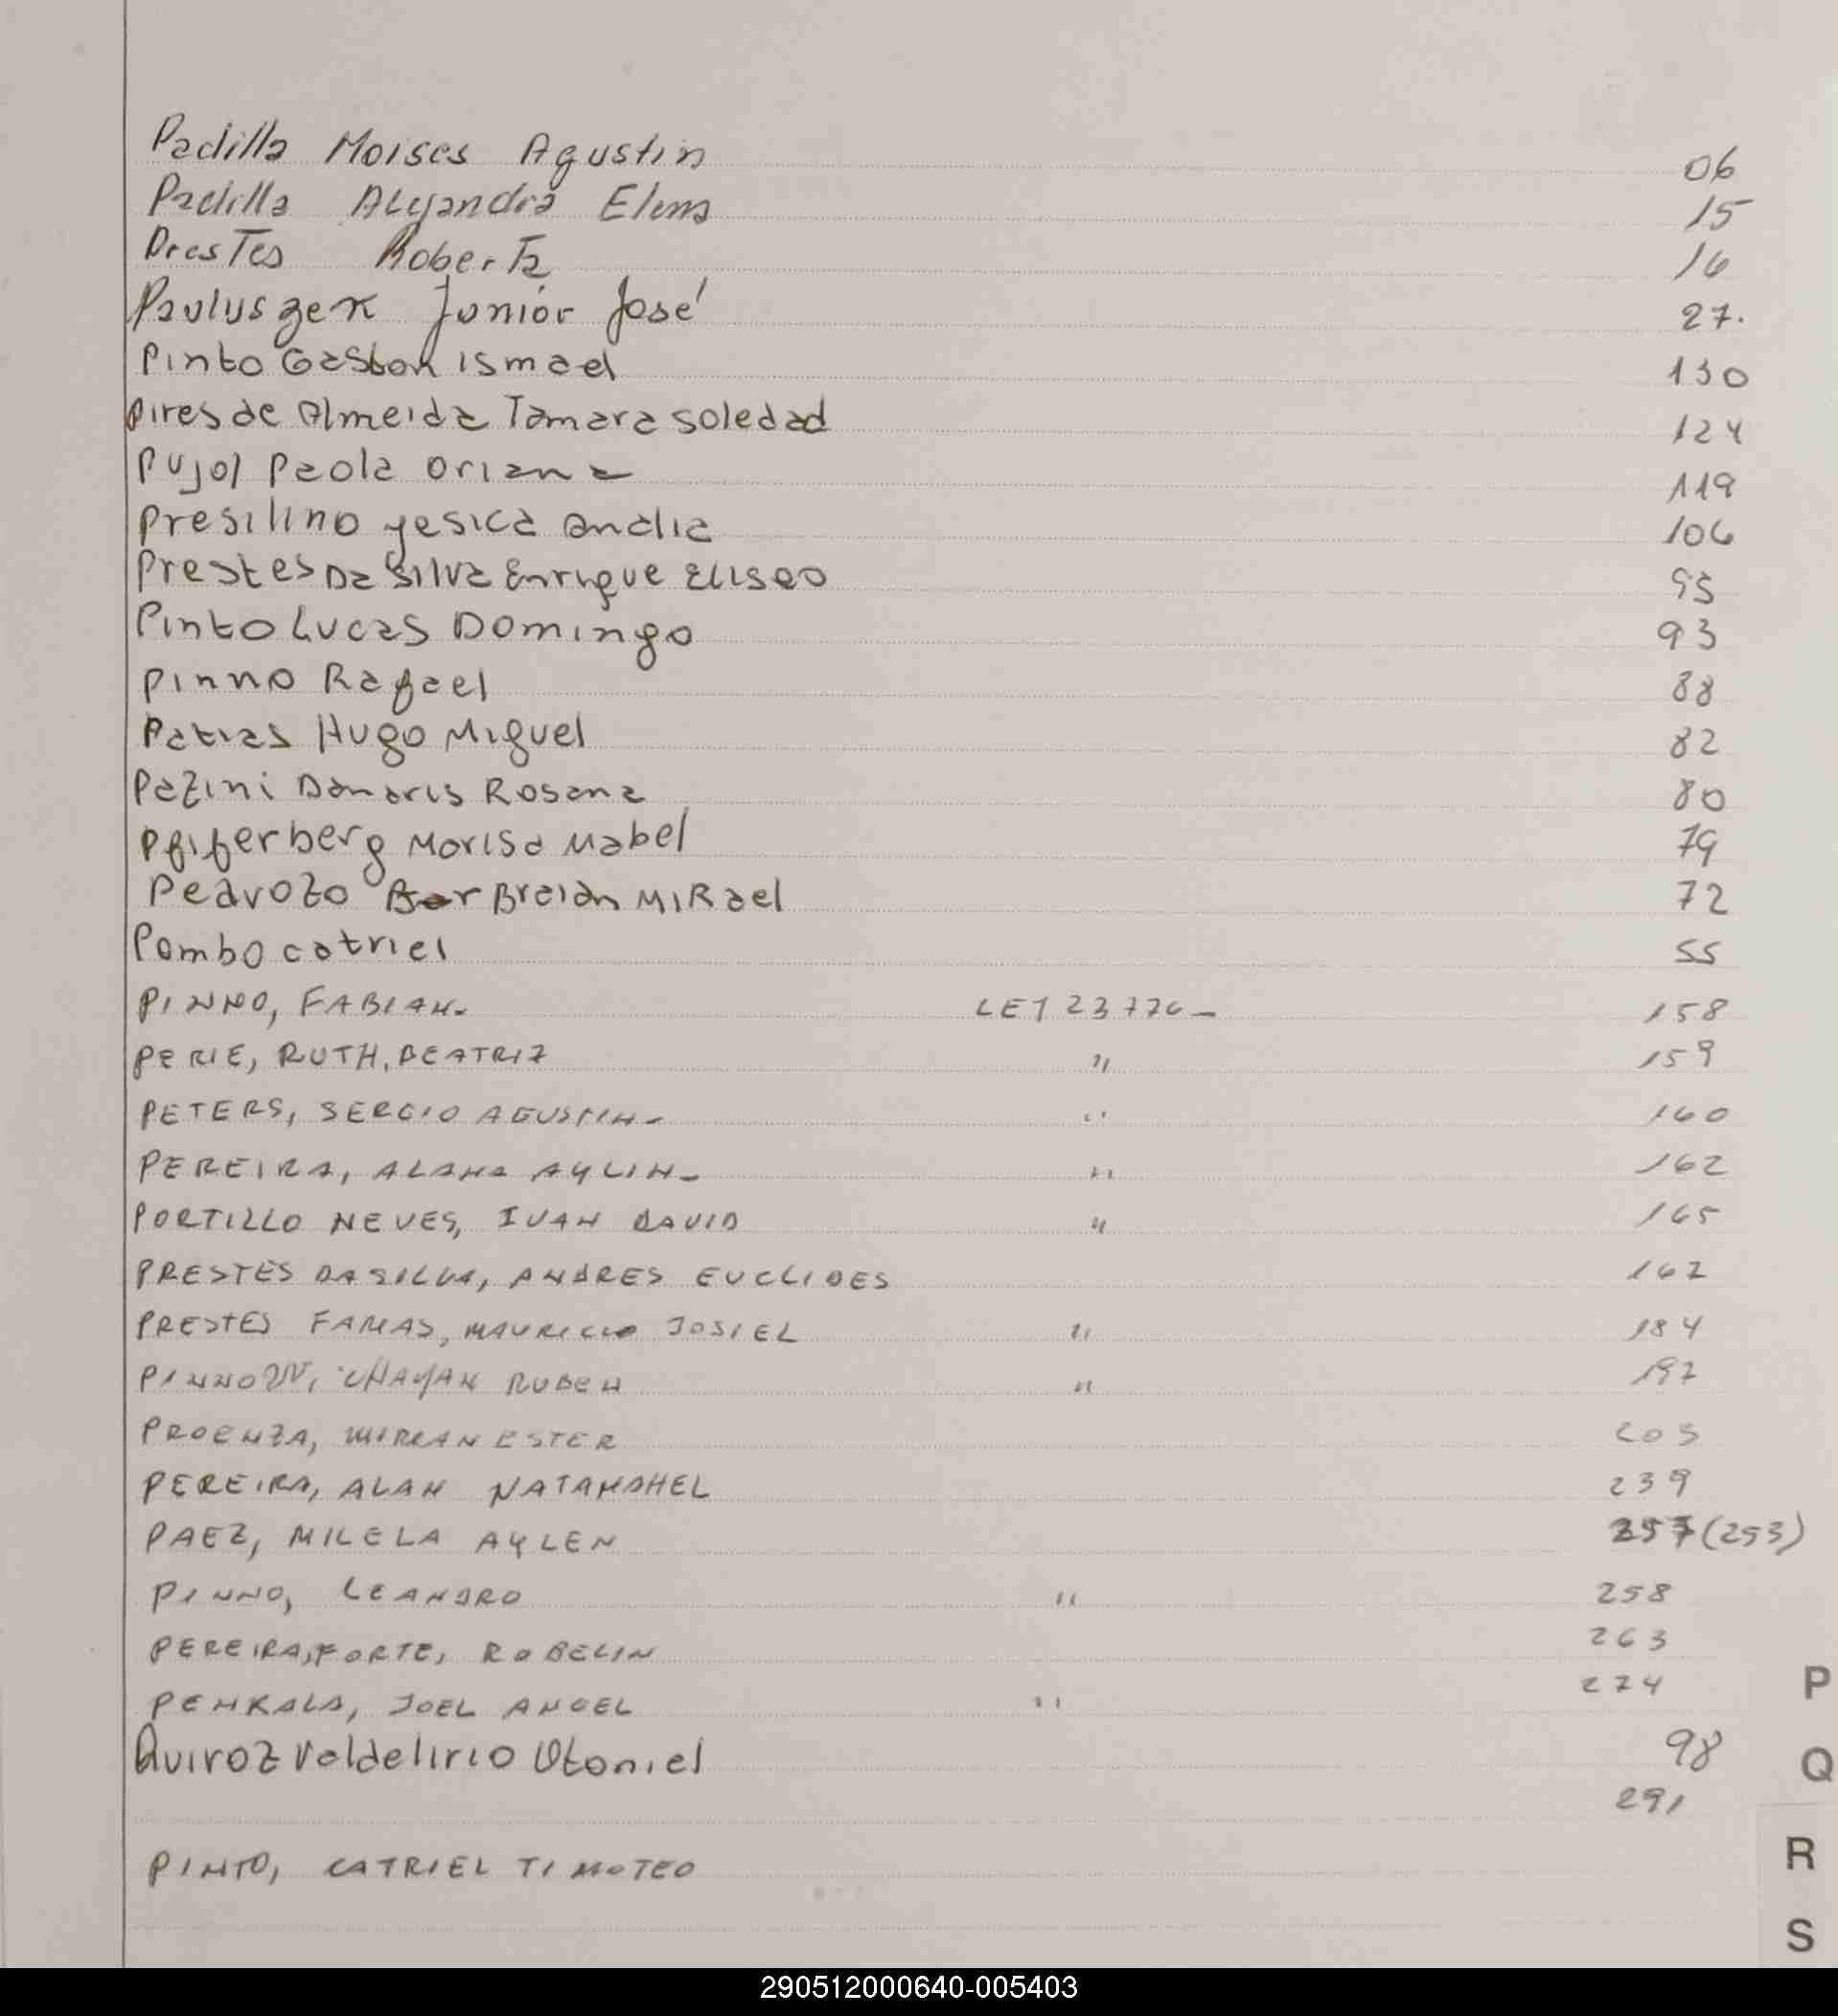 Padilla Moises Agustin 06
Padilla Alejandra Elena 15
Prestes Roberta 16
Pauluszek Junior José 27.
Pinto Gaston ismael 130
Pires de Almeida Tamara soledad 124
Pujol Paola oriana 119
Presilino yesica analia 106
Prestes Da Silva Enrique Eliseo 95
Pinto Lucas Domingo 93
Pinno Rafael 88
Patias Hugo Miguel 82
Pazini Damaris Rosana 80
Pfiferberg Marisa Mabel 79
Pedrozo Braian MiKael 72
Pombo catriel 55
PINNO, FABIAN- LEY 23776- 158
PERIE, RUTH, BEATRIZ " 159
PETERS, SERGIO AGUSTIN- " 160
PEREIRA, ALANA AYLIN- " 162
PORTILLO NEVES, IVAN DAVID " 165
PRESTES DASILVA, ANDRES EUCLIDES 167
PRESTES FAMAS, MAURICIO JOSIEL " 184
PINNOW, CHAYAN RUBEN " 197
PROENZA, MIRIAN ESTER 203
PEREIRA, ALAN NATANAHEL 239
PAEZ, MILELA AYLEN 257 (253)
PINNO, LEANDRO " 258
PEREIRA, FORTE, ROBELIN 263
PENKALA, JOEL ANGEL " 274
P
Quiroz Valdelirio Otoniel 98
Q
291
PINTO, CATRIEL TIMOTEO
R
S
290512000640-005403